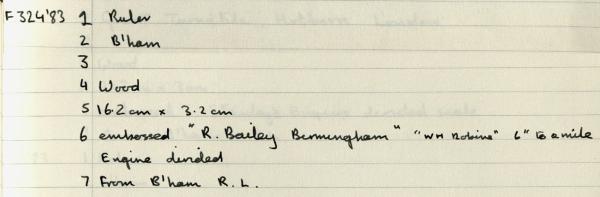 F324'83 1 Ruler
2 B'ham
3
4 Wood
5 16.2cm x 3.2cm
6 embossed "R. Bailey Birmingham" "WH Robins" 6" to a mile
Engine divided
7 From B'ham R.L.